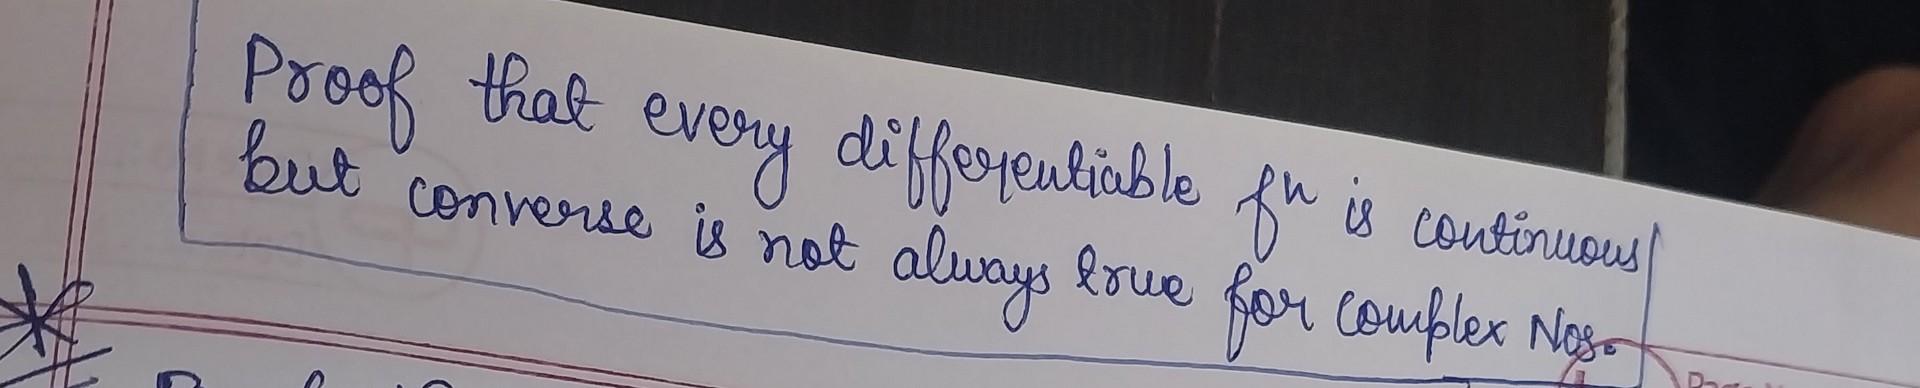 Proof that every differentiable fn is continuous
but converse is not always true for complex Nos.